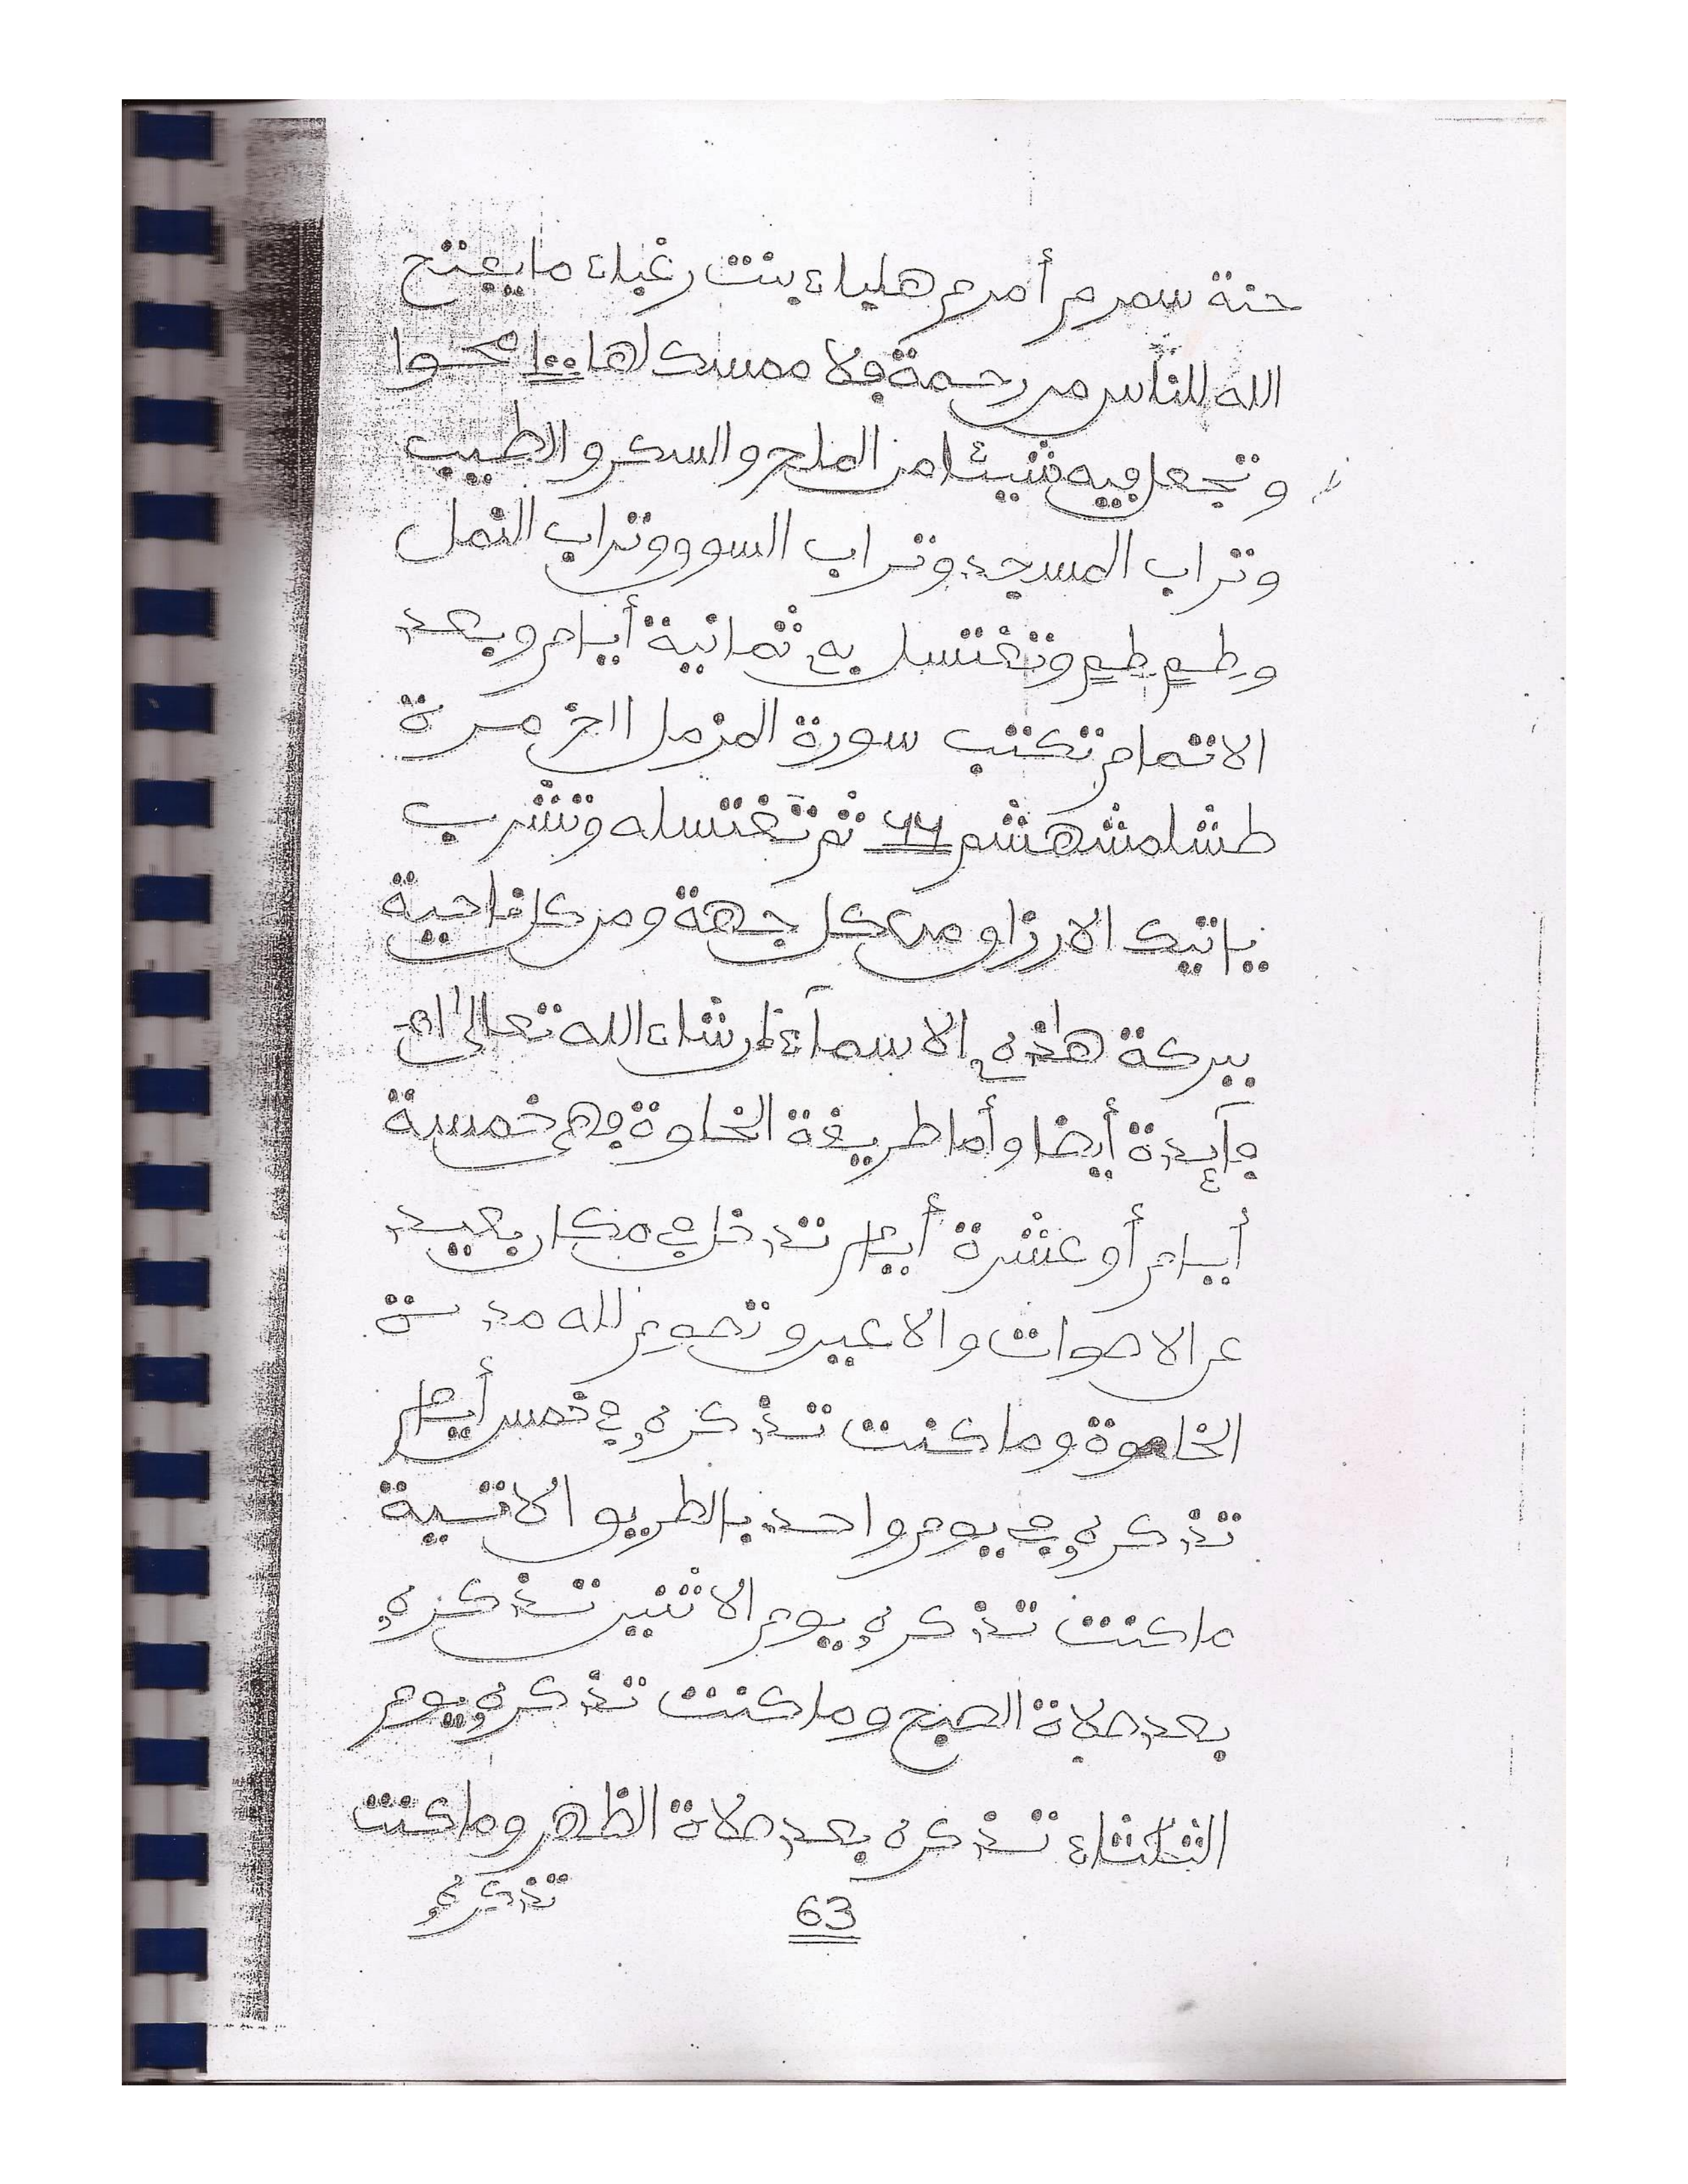 حنة سمرم أمرم هلياء بنت رغباء ما يفتح
الله للناس من رحمة فلا ممسك لها ١٠٠ محوا
وتجعل فيه شيئا من الملح والسكر والطيب
وتراب المسجد وتراب السوق وتراب النمل
وطبع طبع وتغتسل به ثمانية أيام وبعد
الاتمام تكتب سورة المزمل الخ مرة
طشلمشهشم ٤٤ ثم تغتسله وتشرب
ياتيك الارزاق من كل جهة ومن كل ناحية
ببركة هٰذه الاسمآء إن شاء الله تعالىٰ اهـ
فآيدة أيضا وأما طريقة الخلوة فهي خمسة
أيام أو عشرة أيام تدخل في مكان بعيد
عن الاصوات والاعين وتصوم لله مدة
الخلوة وما كنت تذكره في خمس أيام
تذكره في يوم واحد بالطريق الاتية
ما كنت تذكره يوم الاثنين تذكره
بعد صلاة الصبح وما كنت تذكره يوم
الثلثاء تذكره بعد صلاة الظهر وما كنت
تذكره
63